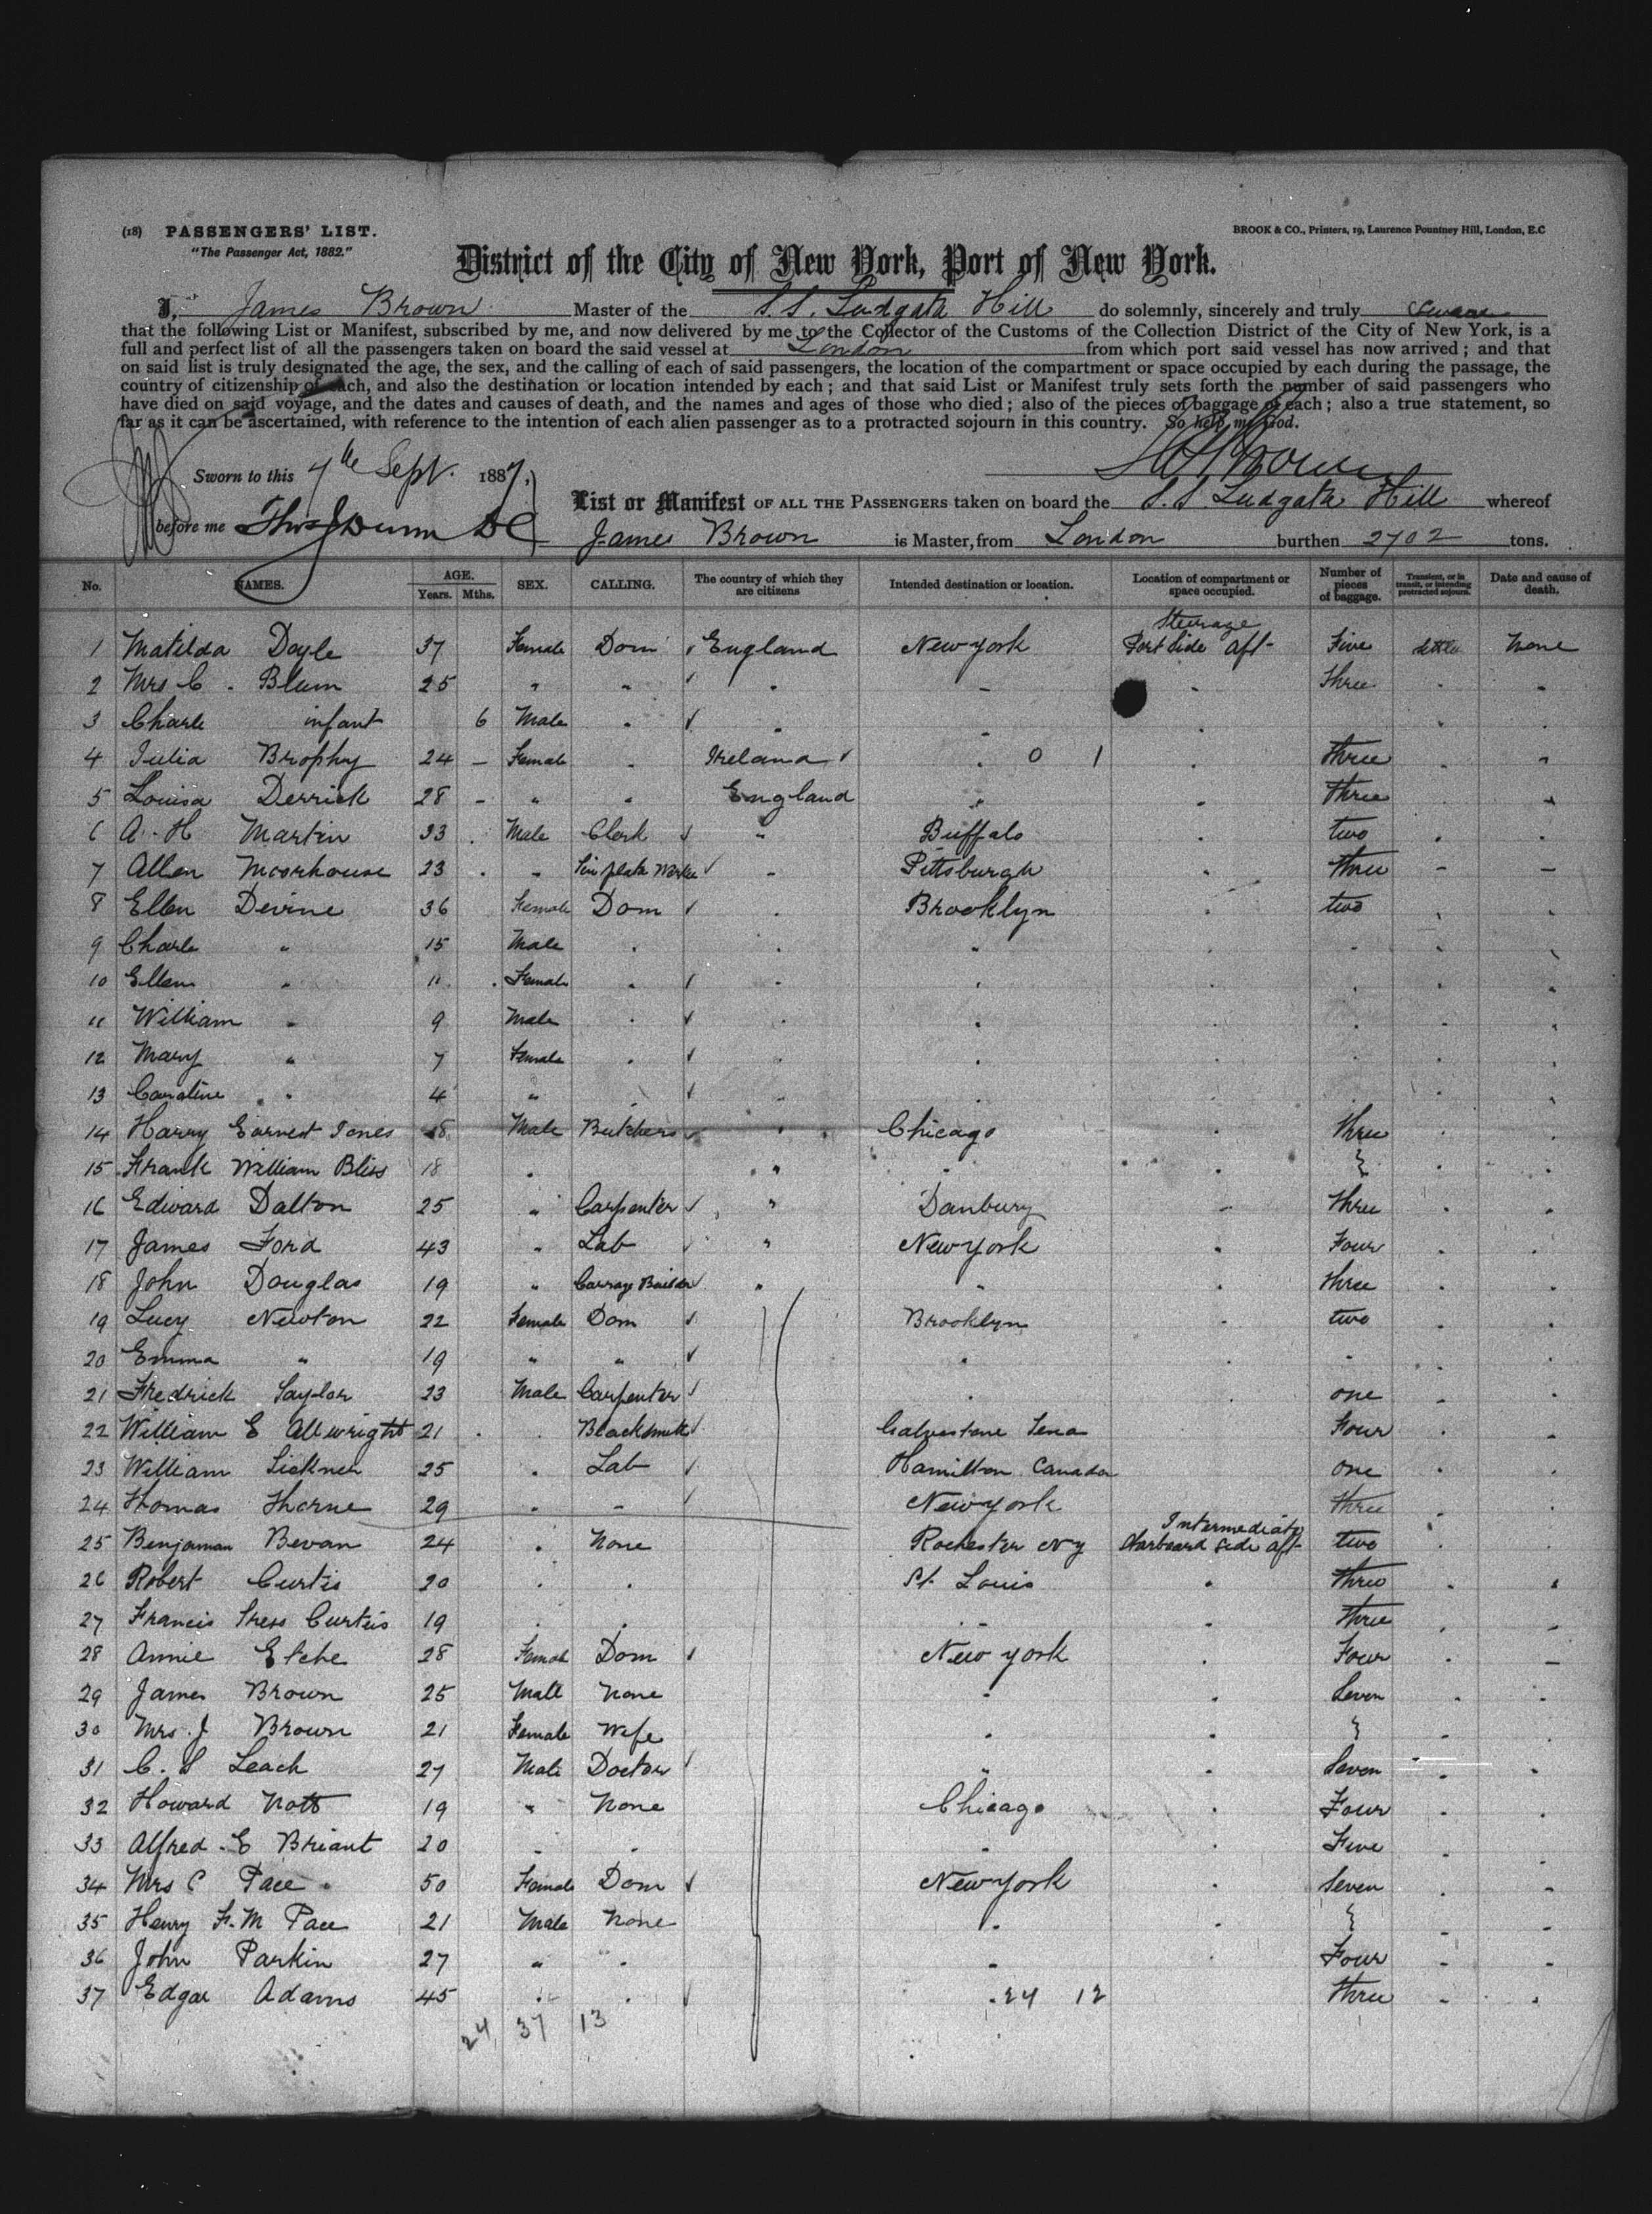 (18) PASSENGERS' LIST.
"The Passenger Act, 1882."
BROOK & CO., Printers, 19, Laurence Pountney Hill, London, E.C
District of the City of New York, Port of New York.
I, James Brown Master of the S.S. Ludgate Hill do solemnly, sincerely and truly swear
that the following List or Manifest, subscribed by me, and now delivered by me to the Collector of the Customs of the Collection District of the City of New York, is a
full and perfect list of all the passengers taken on board the said vessel at London from which port said vessel has now arrived; and that
on said list is truly designated the age, the sex, and the calling of each of said passengers, the location of the compartment or space occupied by each during the passage, the
country of citizenship of each, and also the destination or location intended by each; and that said List or Manifest truly sets forth the number of said passengers who
have died on said voyage, and the dates and causes of death, and the names and ages of those who died; also of the pieces of baggage of each; also a true statement, so
far as it can be ascertained, with reference to the intention of each alien passenger as to a protracted sojourn in this country. So help me God.
Sworn to this 7th Sept. 1887,
before me Thos J Dunn DC
List or Manifest OF ALL THE PASSENGERS taken on board the S.S. Ludgate Hill whereof
James Brown is Master, from London burthen 2702 tons.
No. NAMES. AGE. Years. Mths. SEX. CALLING. The country of which they are citizens Intended destination or location. Location of compartment or space occupied. Number of pieces of baggage. Transient, or in transit, or intending protracted sojourn. Date and cause of death.
1 Matilda Doyle 37 Female Dom England New York Steerage Port Side Aft Five settle None
2 Mrs C. Blum 25 " " " - three
3 Charle infant 6 Male "
4 Julia Brophy 24 - Female " Ireland " 0 1 three
5 Louisa Derrick 28 - " " England " three
6 A. H Martin 33 Male Clerk " Buffalo two
7 Allen Moorhouse 23 " Tin plate Worker " Pittsburgh three
8 Ellen Devine 36 Female Dom " Brooklyn two
9 Charle " 15 Male "
10 Ellen " 11 Female "
11 William " 9 Male "
12 Mary " 7 Female "
13 Caroline " 4 " "
14 Harry Earnest Jones 18 Male Butchers " Chicago three
15 Frank William Bliss 18 " " "
16 Edward Dalton 25 " Carpenter " Danbury three
17 James Ford 43 " Lab " New York Four
18 John Douglas 19 " Carray Builder " " three
19 Lucy Newton 22 Female Dom Brooklyn two
20 Emma " 19 " " "
21 Fredrick Taylor 23 Male Carpenter " one
22 William E Allwright 21 " Blacksmith Galvestone Four
23 William Tickner 25 " Lab Hamilton Canada one
24 Thomas Thorne 29 " - New York three
25 Benjaman Bevan 24 " None Rochester NY Intermediate Starboard Side Aft two
26 Robert Curtis 20 " " St. Louis " three
27 Francis Curteis 19 " " " " three
28 Annie Etche 28 Female Dom New York " Four
29 James Brown 25 Male None " " Seven
30 Mrs. J Brown 21 Female Wife " "
31 C. S Leach 27 Male Doctor " " Seven
32 Howard Nott 19 " None Chicago " Four
33 Alfred. E Briant 20 " " " " Five
34 Mrs C Pace 50 Female Dom New York " Seven
35 Henry F. M Pace 21 Male None " "
36 John Parkin 27 " " " " Four
37 Edgar Adams 45 " " " 24 12 three
24 37 13